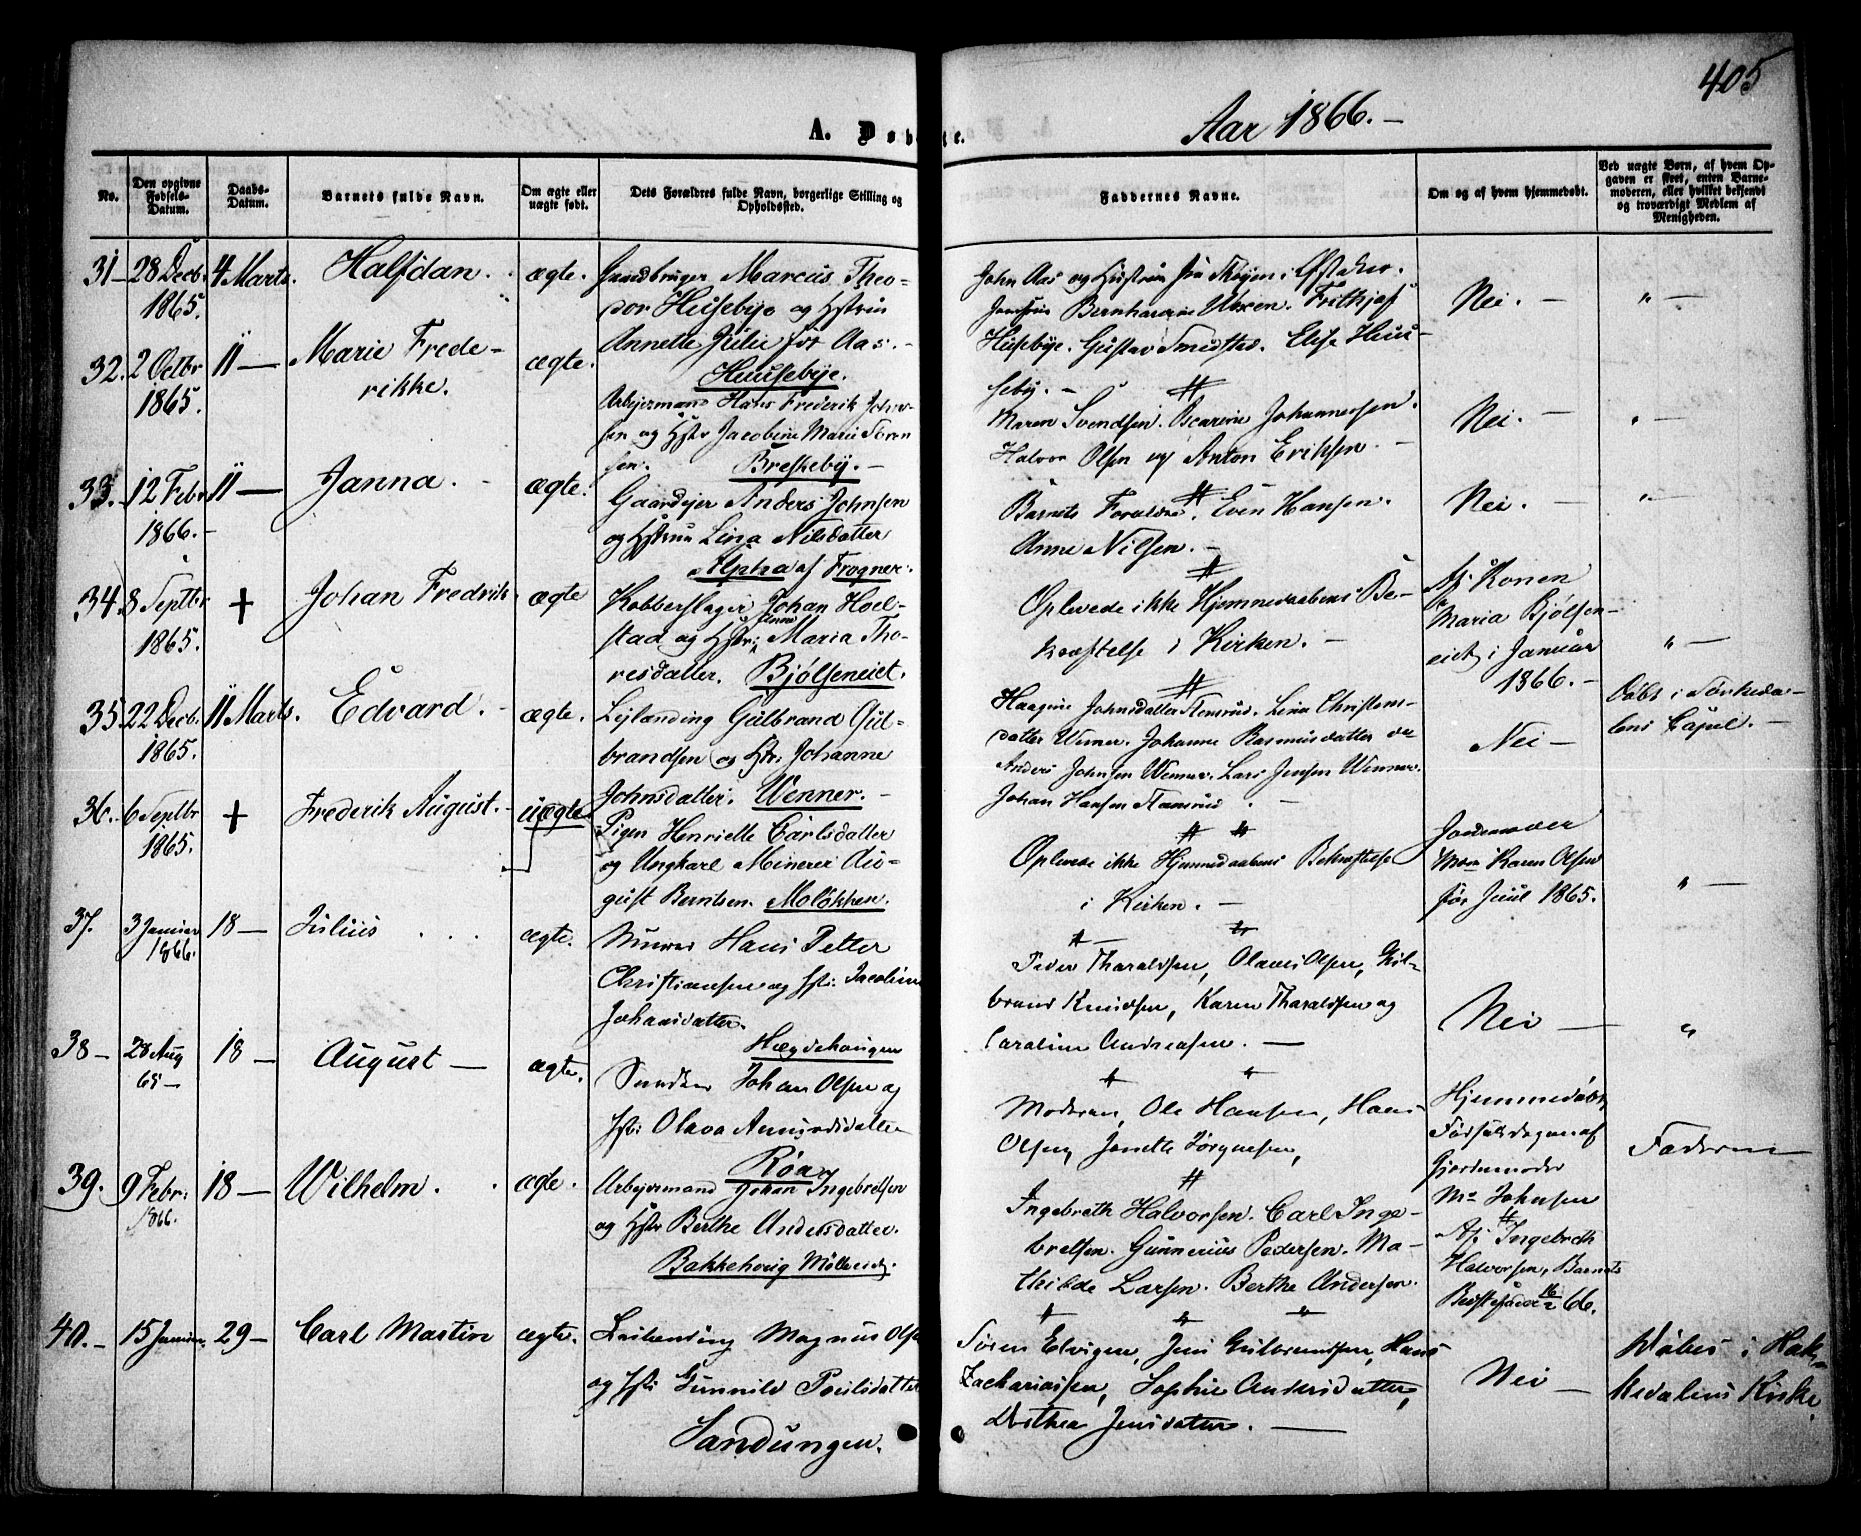 405
A. Døbte.
Aar 1866.-
No.
Den opgivne Fødsels-Datum.
Daabs-Datum.
Barnets fulde Navn.
Om ægte eller uægte født.
Dets Forældres fulde Navn, borgerlige Stilling og Opholdssted.
Faddernes Navne.
Om og af hvem hjemmedøbt.
Ved uægte Børn, af hvem Opgaven er skeet, enten Barnemoderen, eller hvilket bekjendt og troværdigt Medlem af Menigheden.
31- 28 Decb. 1865.
4 Marts.
Halfdan.
ægte.
Gaardbruger Marcus Theo-
dor Husebye og Hstru
Annette Julie før Aas.-
Husebije.
John Aas og Hustru fra Thøjen i Østaker.
Bernhardine Uxen. Frithjof
Husebye. Gustav Smidsted. Elise Huu-
seby.-
Nei.-
"-
32. 2 Octbr 1865.
11-
Marie Frede-
rikke.
ægte.
Arbejdsmand Hans Frederik Johan-
sen og Hstr Jacobine Marie Soren
sen. Breskeby.-
Maren Svendsen. Oscarine Johannesen.
Halvor Olsen og Anton Eriksen.-
Nei.-
"-
33. 12 Febr 1866.-
11-
Janna.-
ægte.
Gaardejer Anders Johnsen
og Hstru Lina Nilsdatter
Alpha af Frogner.
Barnets Forældre. Even Hansen.
Anne Nilsen.-
Nei.-
"-
34. 8 Septbr 1865.
+
Johan Fredrik
ægte
Kobberslager Johan Hoel-
stad og Hstr: Maria Tho-
resdatter. Bjølseneiet.
Oplevede ikke Hjemmedaabens Be-
kræftelse i Kirken.-
Af Konen
Maria Bjølsen-
eiet i Januar
1866.-
"-
35. 22 Decb. 1865.
11 Marts.
Edvard.-
ægte.
Lejlænding Gulbrand Gul-
brandsen og Hstr: Johanne
Johnsdatter. Wenner.-
Haagine Johnsdatter Stamrud. Lina Christens-
datter Wenner. Johanne Rasmusdatter do
Anders Johnsen Wenner. Lars Jensen Wenner.
Johan Hansen Stamrud.-
Nei-
Døbt i Sørkeda-
lens Capel.-
36. 6 Septbr 1865.
+
Frederik August.-
uægte
Pigen Henriette Carlsdatter
og Ungkarl Minerer Au-
gust Berntsen. Moløkken.
Oplevede ikke Hjemmedaabens Bekræftelse
i Kirken.-
Jordemoder
Karen Olsen
før Juul 1865.
"-
37. 3 Januar 1866.
18-
Julius
ægte.
Murer Hans Petter
Christiansen og Hst: Jacobine
Johansdatter.
Hægdehaugen
Peder Tharaldsen, Olaves Olsen, Gul-
brand Knudsen, Karen Tharaldsen og
Caroline Andreasen.-
Nei-
"
38- 28 Aug 65-
18-
August-
ægte.
Snedker Johan Olsen og
Hst: Olava Amundsdatter
Røa
Moderen, Ole Hansen, Hans
Olsen, Janette Jørgensen,
Hjemmedøbt
Fødselsdagen af
Gjordemoder
M. Johnsen
Faderen
39. 9 Febr: 1866.
18-
Wilhelm.
ægte.
Arbejdsmand Johan Ingebretsen
og Hstr Berthe Andersdatter.
Bakkehaug Mølleneiet.
Ingebreth Halvorsen. Carl Inge-
bretsen. Gunnerius Pedersen. Ma-
thilde Larsen. Berthe Andersen.
Af Ingebreth
Halvorsen, Barnets
Bedstefader 16/2 66.
40.- 15 Januar.
29-
Carl Martin
ægte.
Leilending Magnus Olsen
og Hst: Gunnild Poulsdatter
Sandungen.
Søren Elvigen, Jens Gulbrandsen, Hans
Zachariassen, Sophie Andersdatter,
Dorthea Jensdatter.-
Nei-
Døbes i Hak-
kedalens Kirke.